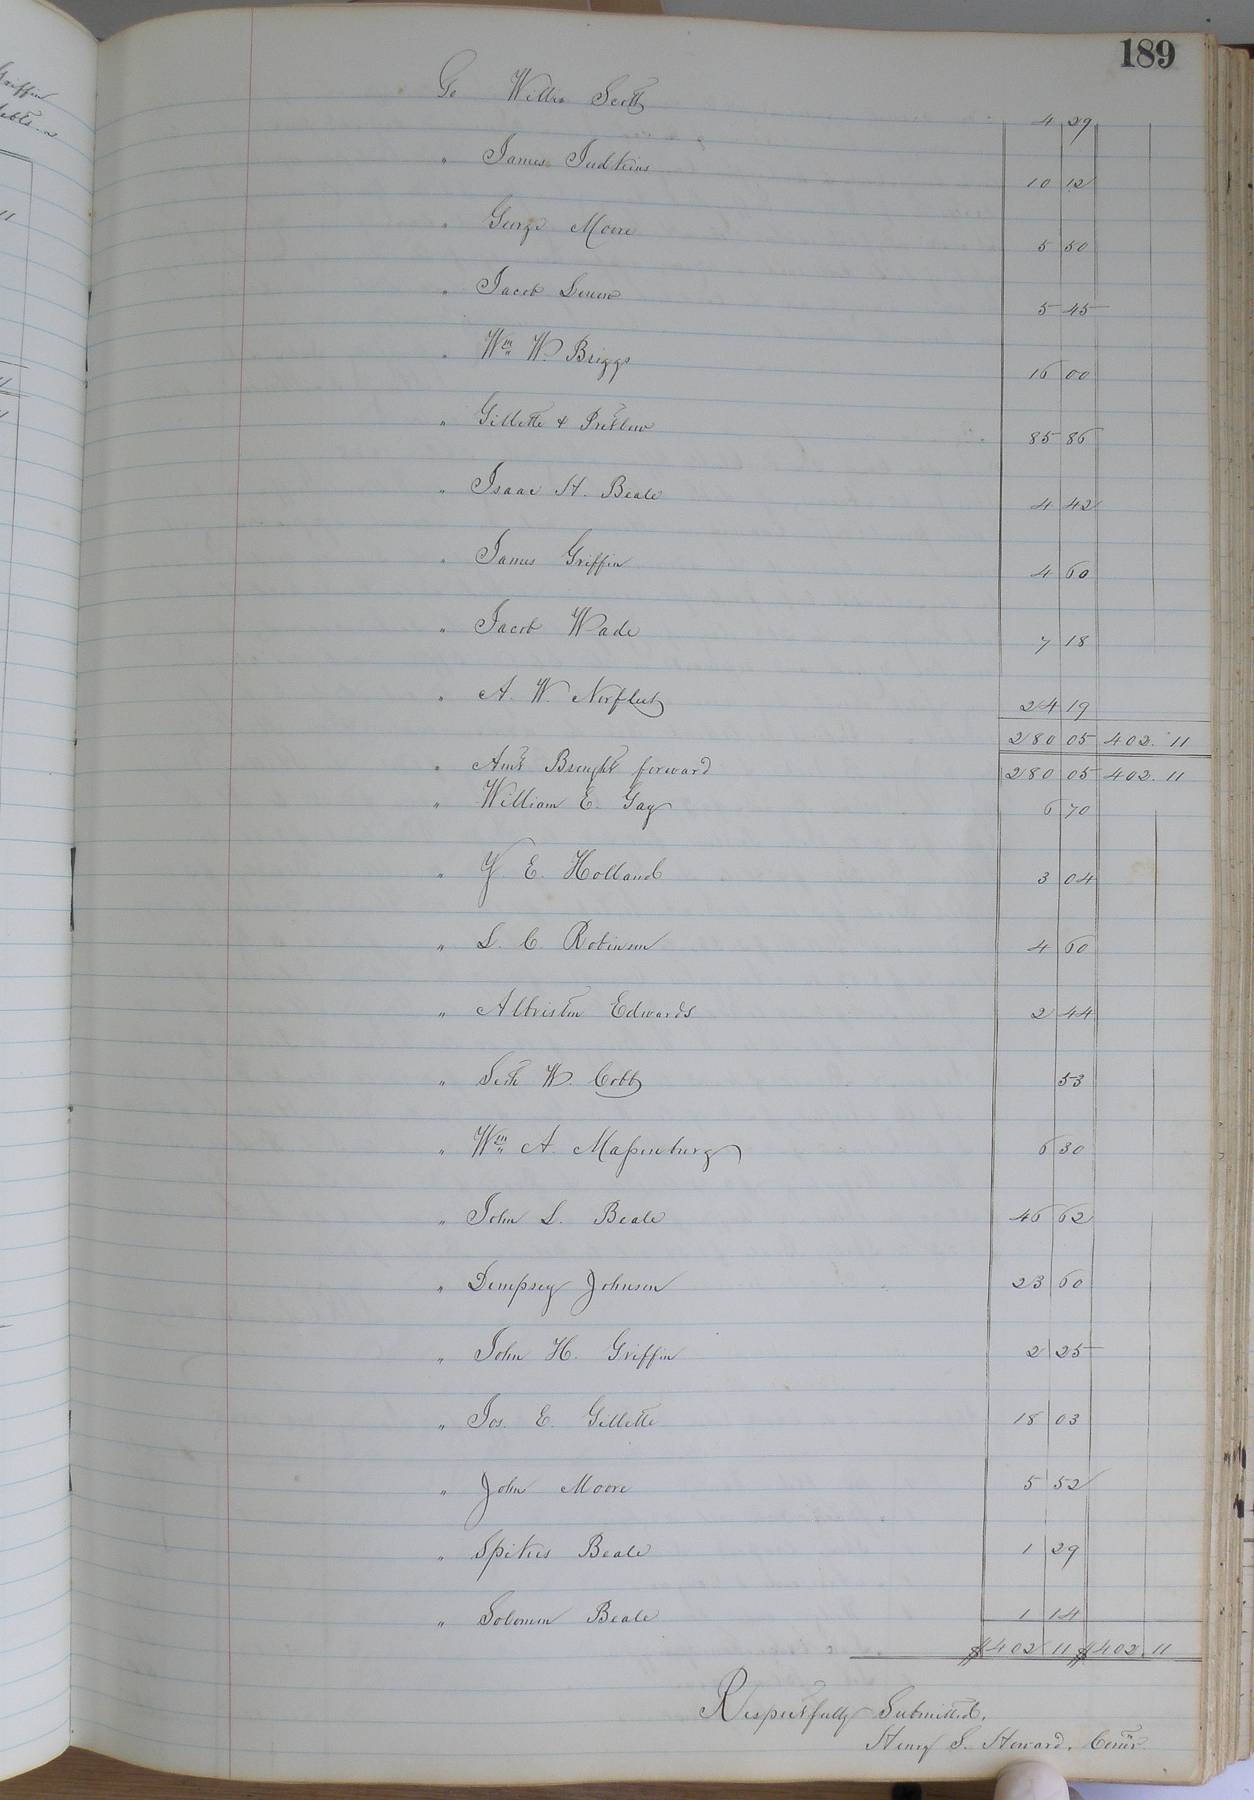 Griffin
189
To Willis Scott 4 29
" James Judkins 10 12
" George Moore 5 50
" Jacob 5 45
" Wm W. Briggs 16 00
" Gillette & Pretlow 85 86
" Isaac H. Beale 4 42
" James Griffin 4 60
" Jacob Wade 7 18
" A. W. Norfleet 24 19
280 05 402. 11
" Amt Brought forward 280 05 402. 11
" William E. Gay 6 70
" Y. E. Holland 3 04
" L. C. Robinson 4 60
" Albriston Edwards 2 44
" Seth W. Cobb 53
" Wm A. Massenburg 6 30
" John L. Beale 46 62
" Dempsey Johnson 23 60
" John H. Griffin 2 25
" Jos. E. Gillette 18 03
" John Moore 5 52
" Spikes Beale 1 29
" Solomon Beale 1 14
$402 11 $402. 11
Respectfully Submitted,
Henry S. Howard, Comr